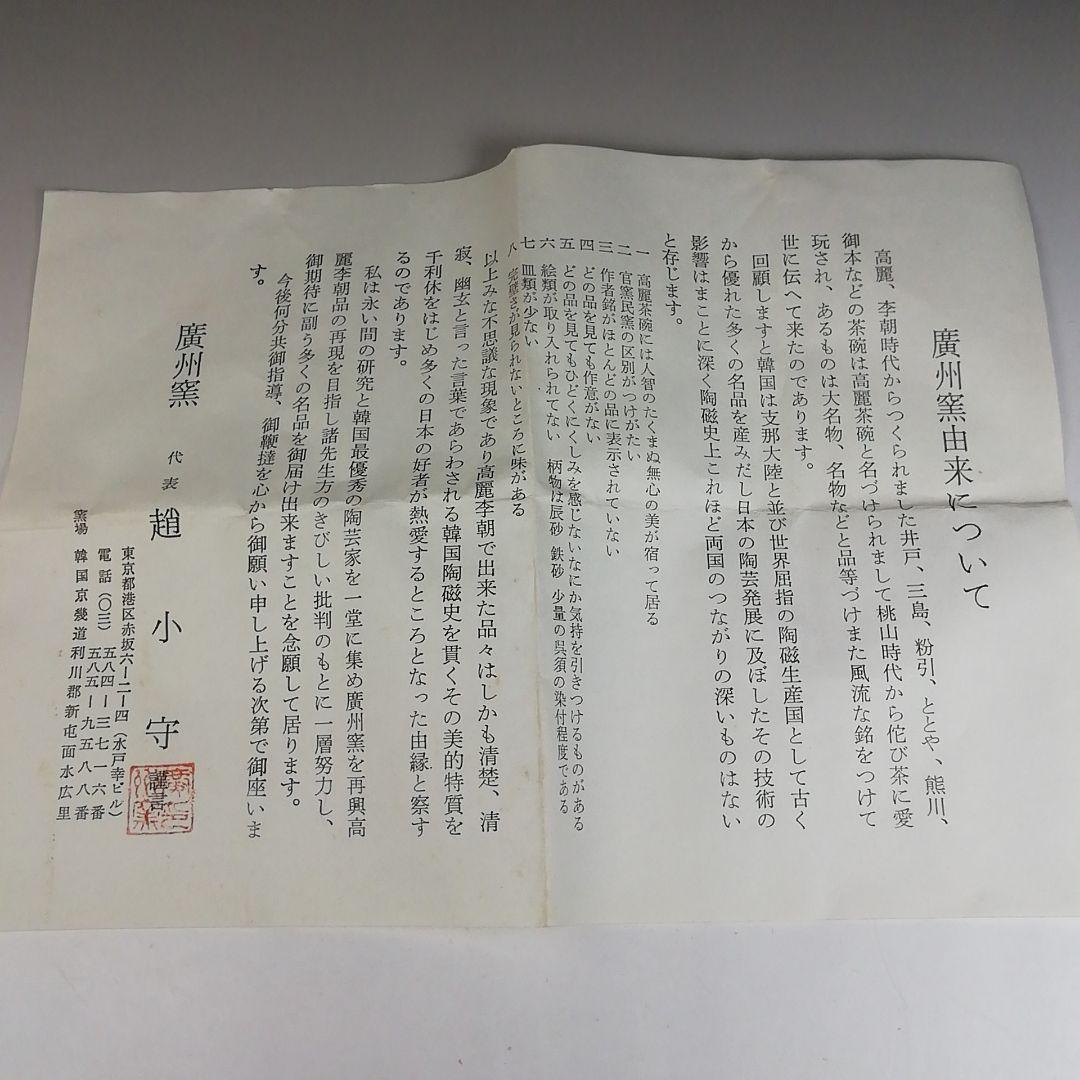 廣州窯由来について
高麗、李朝時代からつくられました井戸、三島、粉引、ととや、熊川、
御本などの茶碗は高麗茶碗と名づけられまして桃山時代から佗び茶に愛
玩され、あるものは大名物、名物などと品等づけまた風流な銘をつけて
世に伝へて来たのであります。
回顧しますと韓国は支那大陸と並び世界屈指の陶磁生産国として古く
から優れた多くの名品を産みだし日本の陶芸発展に及ぼしたその技術の
影響はまことに深く陶磁史上これほど両国のつながりの深いものはない
と存じます。
一 高麗茶碗には人智のたくまぬ無心の美が宿って居る
二 官窯民窯の区別がつけがたい
三 作者銘がほとんどの品に表示されていない
四 どの品を見ても作意がない
五 どの品を見てもひどくにくしみを感じないなにか気持を引きつけるものがある
六 絵類が取り入れられてない 柄物は辰砂 鉄砂 少量の呉須の染付程度である
七 皿類が少ない
八 完璧さが見られないところに味がある
以上みな不思議な現象であり高麗李朝で出来た品々はしかも清楚、清
寂、幽玄と言った言葉であらわされる韓国陶磁史を貫くその美的特質を
千利休をはじめ多くの日本の好者が熱愛するところとなった由縁と察す
るのであります。
私は永い間の研究と韓国最優秀の陶芸家を一堂に集め廣州窯を再興高
麗李朝品の再現を目指し諸先生方のきびしい批判のもとに一層努力し、
御期待に副う多くの名品を御届け出来ますことを念願して居ります。
今後何分共御指導、御鞭撻を心から御願い申し上げる次第で御座いま
す。
廣州窯 代表 趙小守
東京都港区赤坂六ー二ー四（水戸幸ビル）
電話（〇三）五八四ー三七一六番
五八五ー九五八八番
窯場 韓国京畿道利川郡新屯面水広里